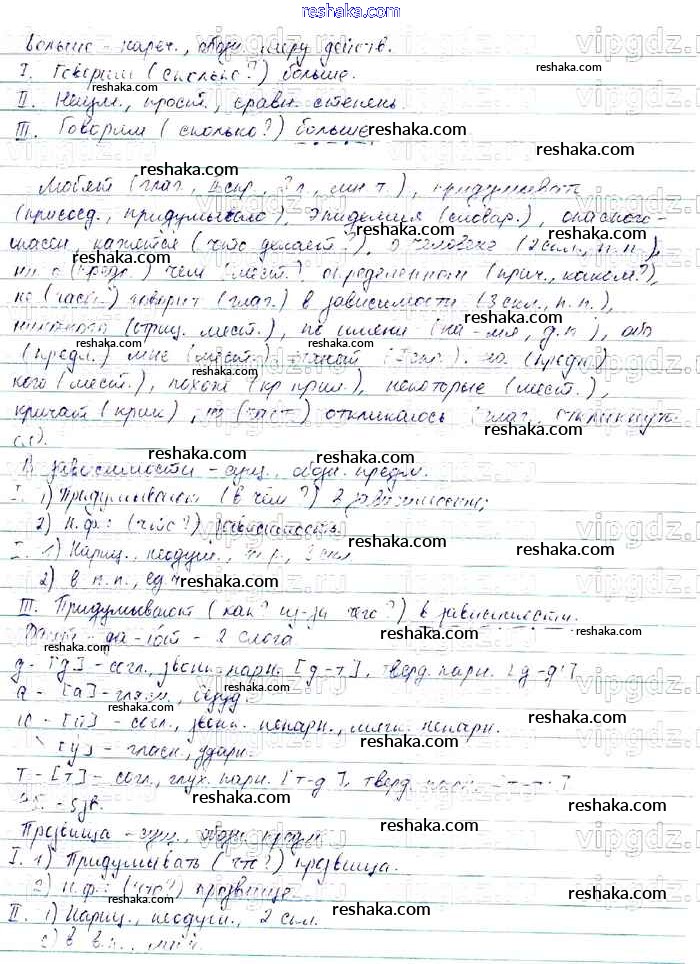 reshaka.com
Больше – нареч., обозн. меру действ.
I. Говорим (сколько?) больше.
II. Неизм., прост., сравн. степень
III. Говорим (сколько?) больше
Любят (глаг., II спр., 3 л., мн. ч.), придумывать
(присоед., придумывало), эпидемия (словар.), опасного –
опасен, кажется (что делает?), о человеке (2 скл., п. п.),
ни о (предл.) чем (мест.), определенном (прич., каком?),
не (част.) говорит (глаг.) в зависимости (3 скл., п. п.),
(отриц. мест.), по имени (на -мя, д. п.), обо
(предл.) мне (мест.) на (предл.)
кого (мест.), похож (кр. прил.), некоторые (мест.),
кричат (крик), не (част.) откликалось (глаг., откликнуть-
ся).
В зависимости – сущ., обозн. предм.
I. 1) Придумывают (в чём?) в зависимости;
2) н. ф.: (что?) зависимость
1) Нариц., неодуш., ж. р., 3 скл.
2) в п. п., ед. ч.
III. Придумывают (как? из-за чего?) в зависимости.
Дают – да-ют – 2 слога
д – [д] – согл., звонк. парн. [д-т], тверд. парн. [д-д']
а – [а] – гласн., безуд.
ю – [й'] – согл., звонк. непарн., мягк. непарн.
[у] – гласн., ударн.
т – [т] – согл., глух. парн. [т-д], тверд. парн. [т-т']
4б. – 5зв.
Прозвища – сущ., обозн. предм.
I. 1) Придумывать (что?) прозвища.
2) н. ф.: (что?) прозвище.
II. 1) Нариц., неодуш., 2 скл.
2) в в. п., мн. ч.